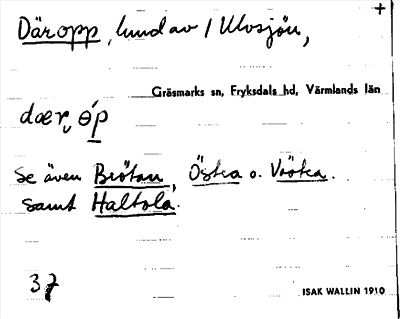 Där opp, lund av / Ulvsjön, +
Gräsmarks sn, Fryksdals hd, Värmlands län
dær, óp
Se även Brötan, Östra o. Västra.
samt Haltola.
37
ISAK WALLIN 1910